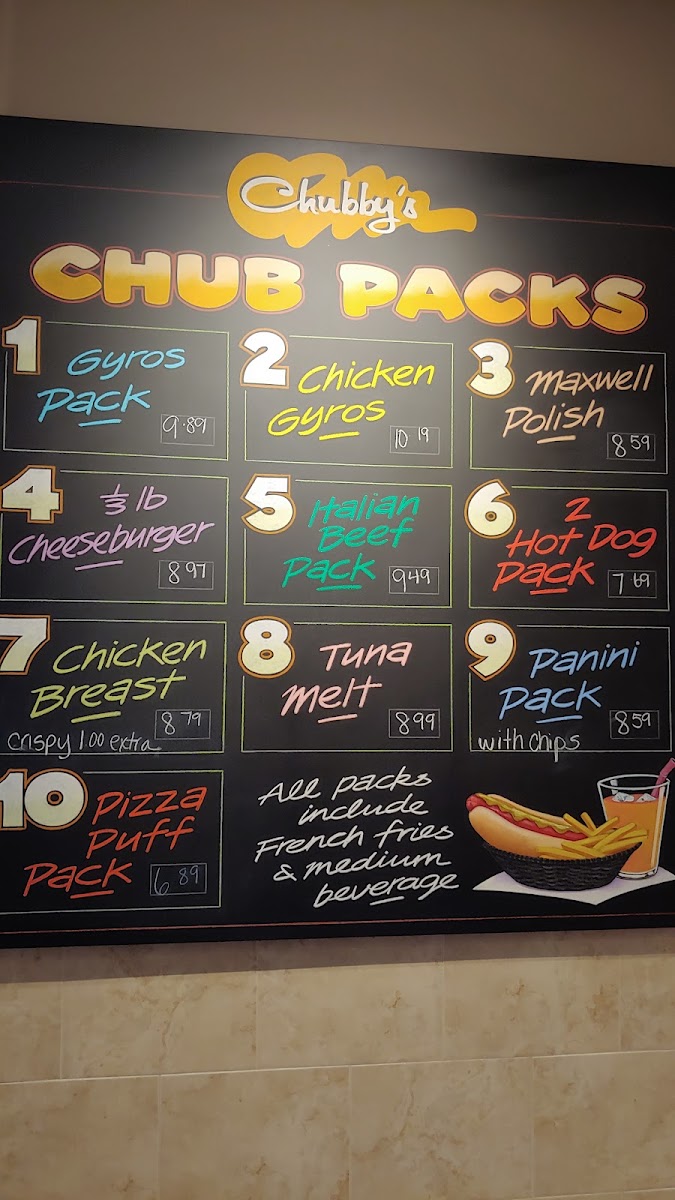 Chubby's
CHUB PACKS
1 Gyros
Pack
9.89
2 Chicken
Gyros
10 19
3 Maxwell
Polish
8 59
4 1/3 lb
Cheeseburger
8 97
5 Italian
Beef
Pack
9 49
6 2
Hot Dog
Pack
7 69
7 Chicken
Breast
8 79
Crispy 1.00 extra
8 Tuna
Melt
8 99
9 Panini
Pack
8 59
with chips
10 Pizza
Puff
Pack
6 89
All packs
include
French fries
& medium
beverage